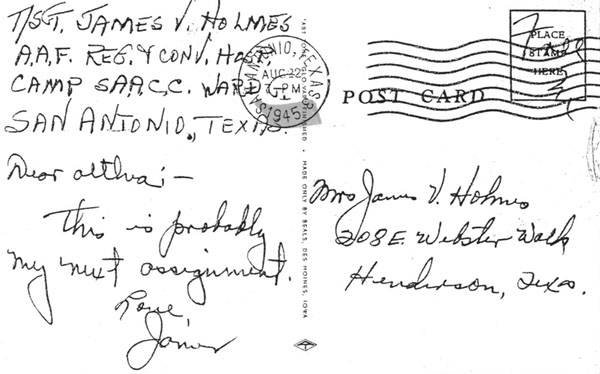 T/SGT. JAMES V. HOLMES
A.A.F. REG. & CONV. HOSP.
CAMP S.A.A.C.C. WARD
SAN ANTONIO, TEXAS.
Dear Althea:—
This is probably
my next assignment.
Love
James
SAN ANTONIO, TEXAS
AUG 22
PM
1945
MADE ONLY BY BEALS, DES MOINES, IOWA
PLACE
STAMP
HERE
Free
POST CARD
Mrs James V. Holmes
208 E. Webster Walk
Henderson, Texas.